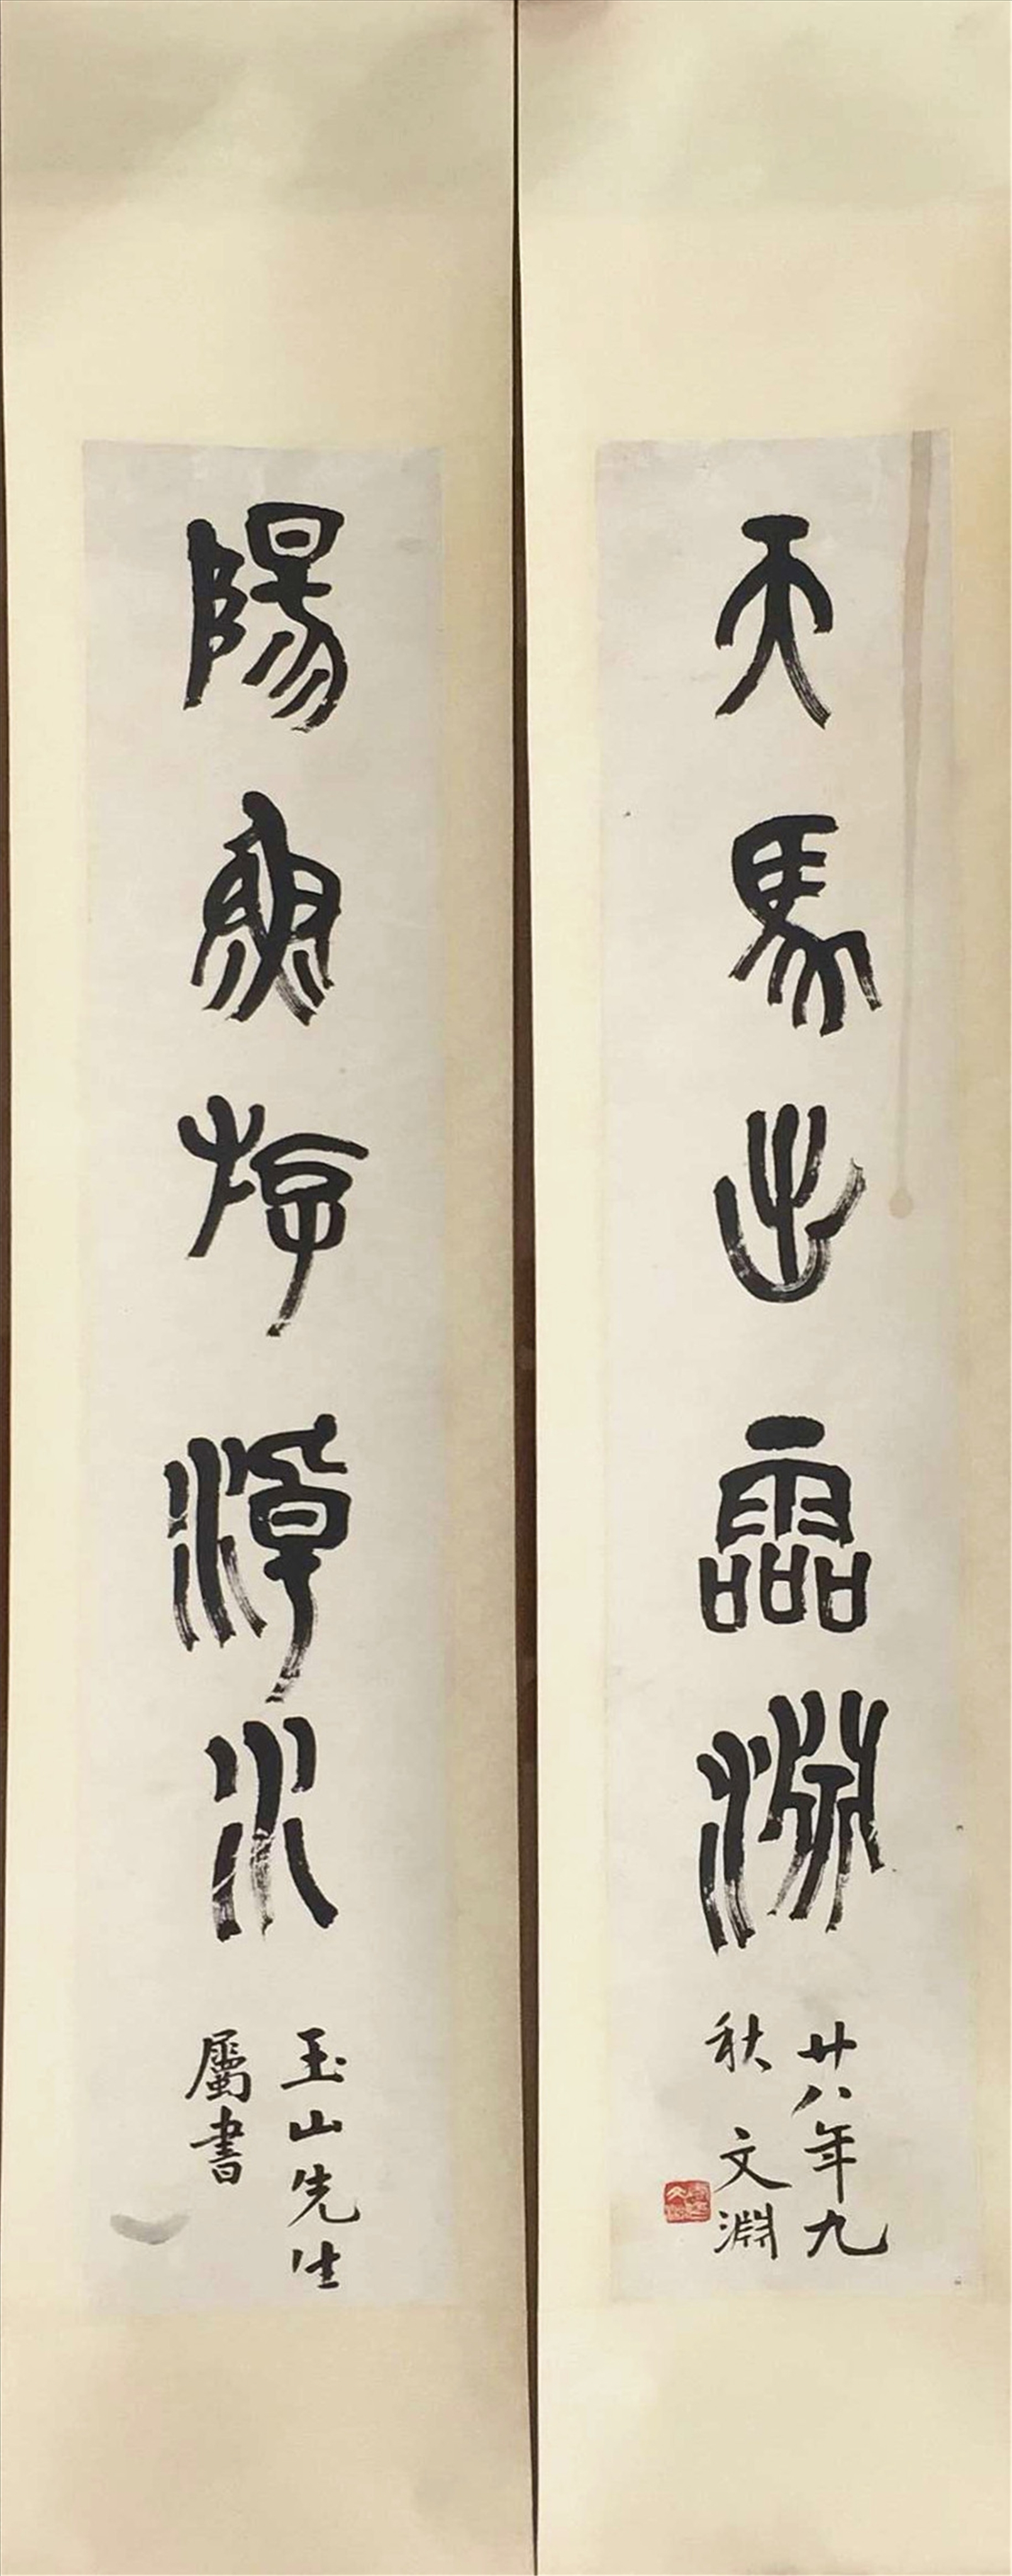 天馬出霝淵
廿八年九
秋 文淵
陽魚斿淖水
玉山先生
屬書